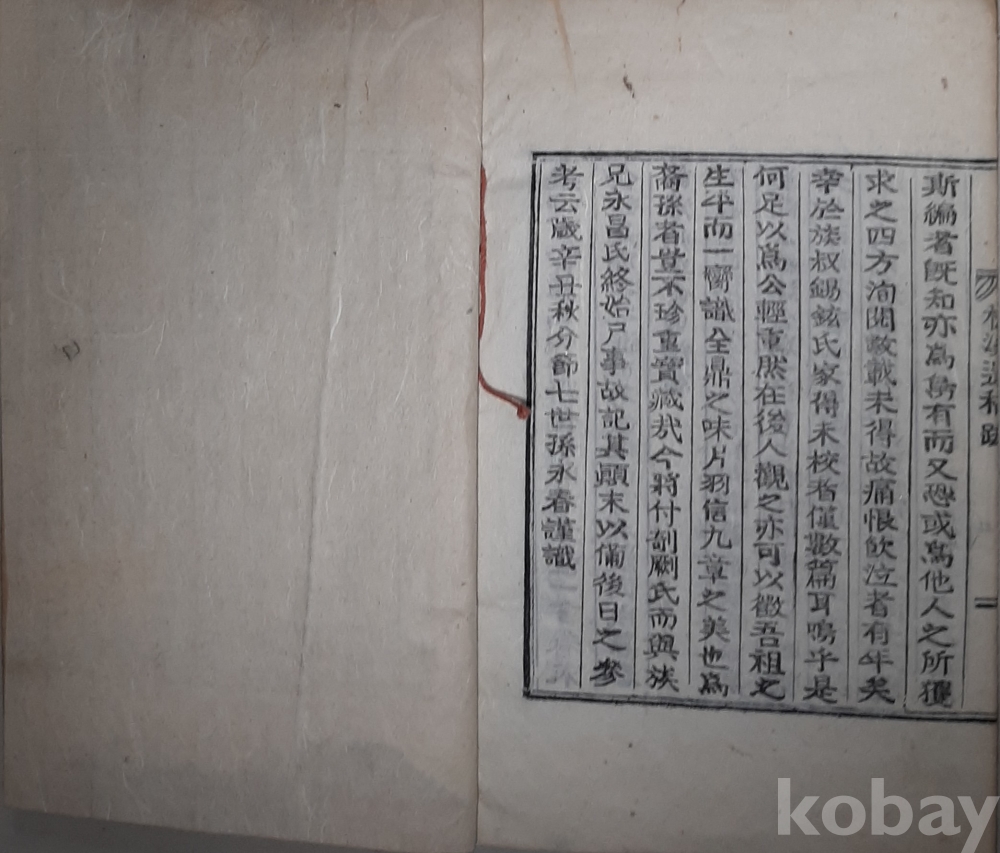 遺稿跋
斯編者旣知亦爲舊有而又恐或爲他人之所獲
求之四方洵閱數載未得故痛恨飮泣者有年矣
幸於族叔錫鉉氏家得未校者僅數篇耳嗚乎是
何足以爲公輕重然在後人觀之亦可以徵吾祖之
生平而一臠識全鼎之味片羽信九章之美也爲
裔孫者豈不珍重寶藏哉今將付剞劂氏而與族
兄永昌氏終始尸事故記其顚末以備後日之參
考云歲辛丑秋分節七世孫永春謹識
kobay